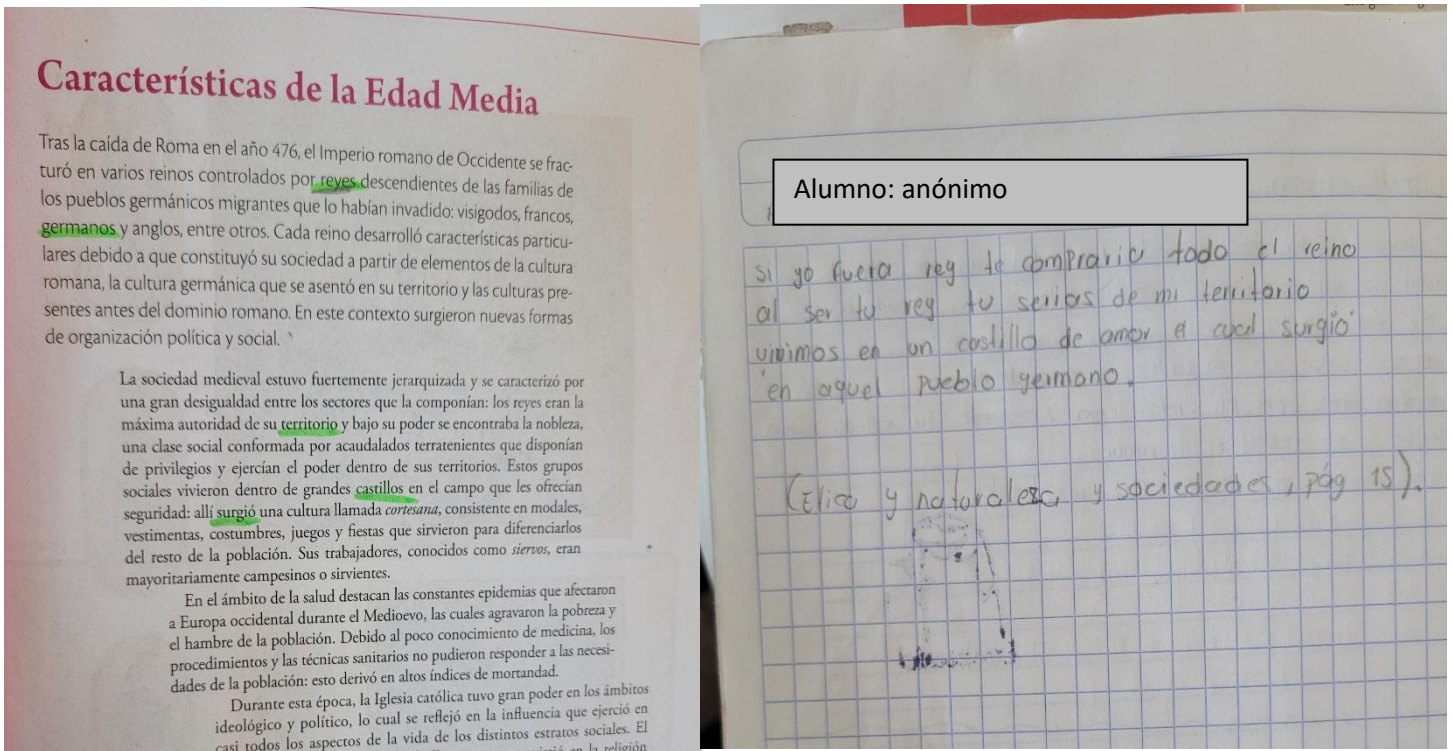 Características de la Edad Media
Tras la caída de Roma en el año 476, el Imperio romano de Occidente se frac-
turó en varios reinos controlados por reyes descendientes de las familias de
los pueblos germánicos migrantes que lo habían invadido: visigodos, francos,
germanos y anglos, entre otros. Cada reino desarrolló características particu-
lares debido a que constituyó su sociedad a partir de elementos de la cultura
romana, la cultura germánica que se asentó en su territorio y las culturas pre-
sentes antes del dominio romano. En este contexto surgieron nuevas formas
de organización política y social.
La sociedad medieval estuvo fuertemente jerarquizada y se caracterizó por
una gran desigualdad entre los sectores que la componían: los reyes eran la
máxima autoridad de su territorio y bajo su poder se encontraba la nobleza,
una clase social conformada por acaudalados terratenientes que disponían
de privilegios y ejercían el poder dentro de sus territorios. Estos grupos
sociales vivieron dentro de grandes castillos en el campo que les ofrecían
seguridad: allí surgió una cultura llamada cortesana, consistente en modales,
vestimentas, costumbres, juegos y fiestas que sirvieron para diferenciarlos
del resto de la población. Sus trabajadores, conocidos como siervos, eran
mayoritariamente campesinos o sirvientes.
En el ámbito de la salud destacan las constantes epidemias que afectaron
a Europa occidental durante el Medioevo, las cuales agravaron la pobreza y
el hambre de la población. Debido al poco conocimiento de medicina, los
procedimientos y las técnicas sanitarios no pudieron responder a las necesi-
dades de la población: esto derivó en altos índices de mortandad.
Durante esta época, la Iglesia católica tuvo gran poder en los ámbitos
ideológico y político, lo cual se reflejó en la influencia que ejerció en
casi todos los aspectos de la vida de los distintos estratos sociales. El
en la religión
Alumno: anónimo
si yo fuera rey te compraria todo el reino
al ser tu rey tu serias de mi territorio
vivimos en un castillo de amor el cual surgió
en aquel pueblo germano.
(Etica y naturaleza y sociedades, pág 15).